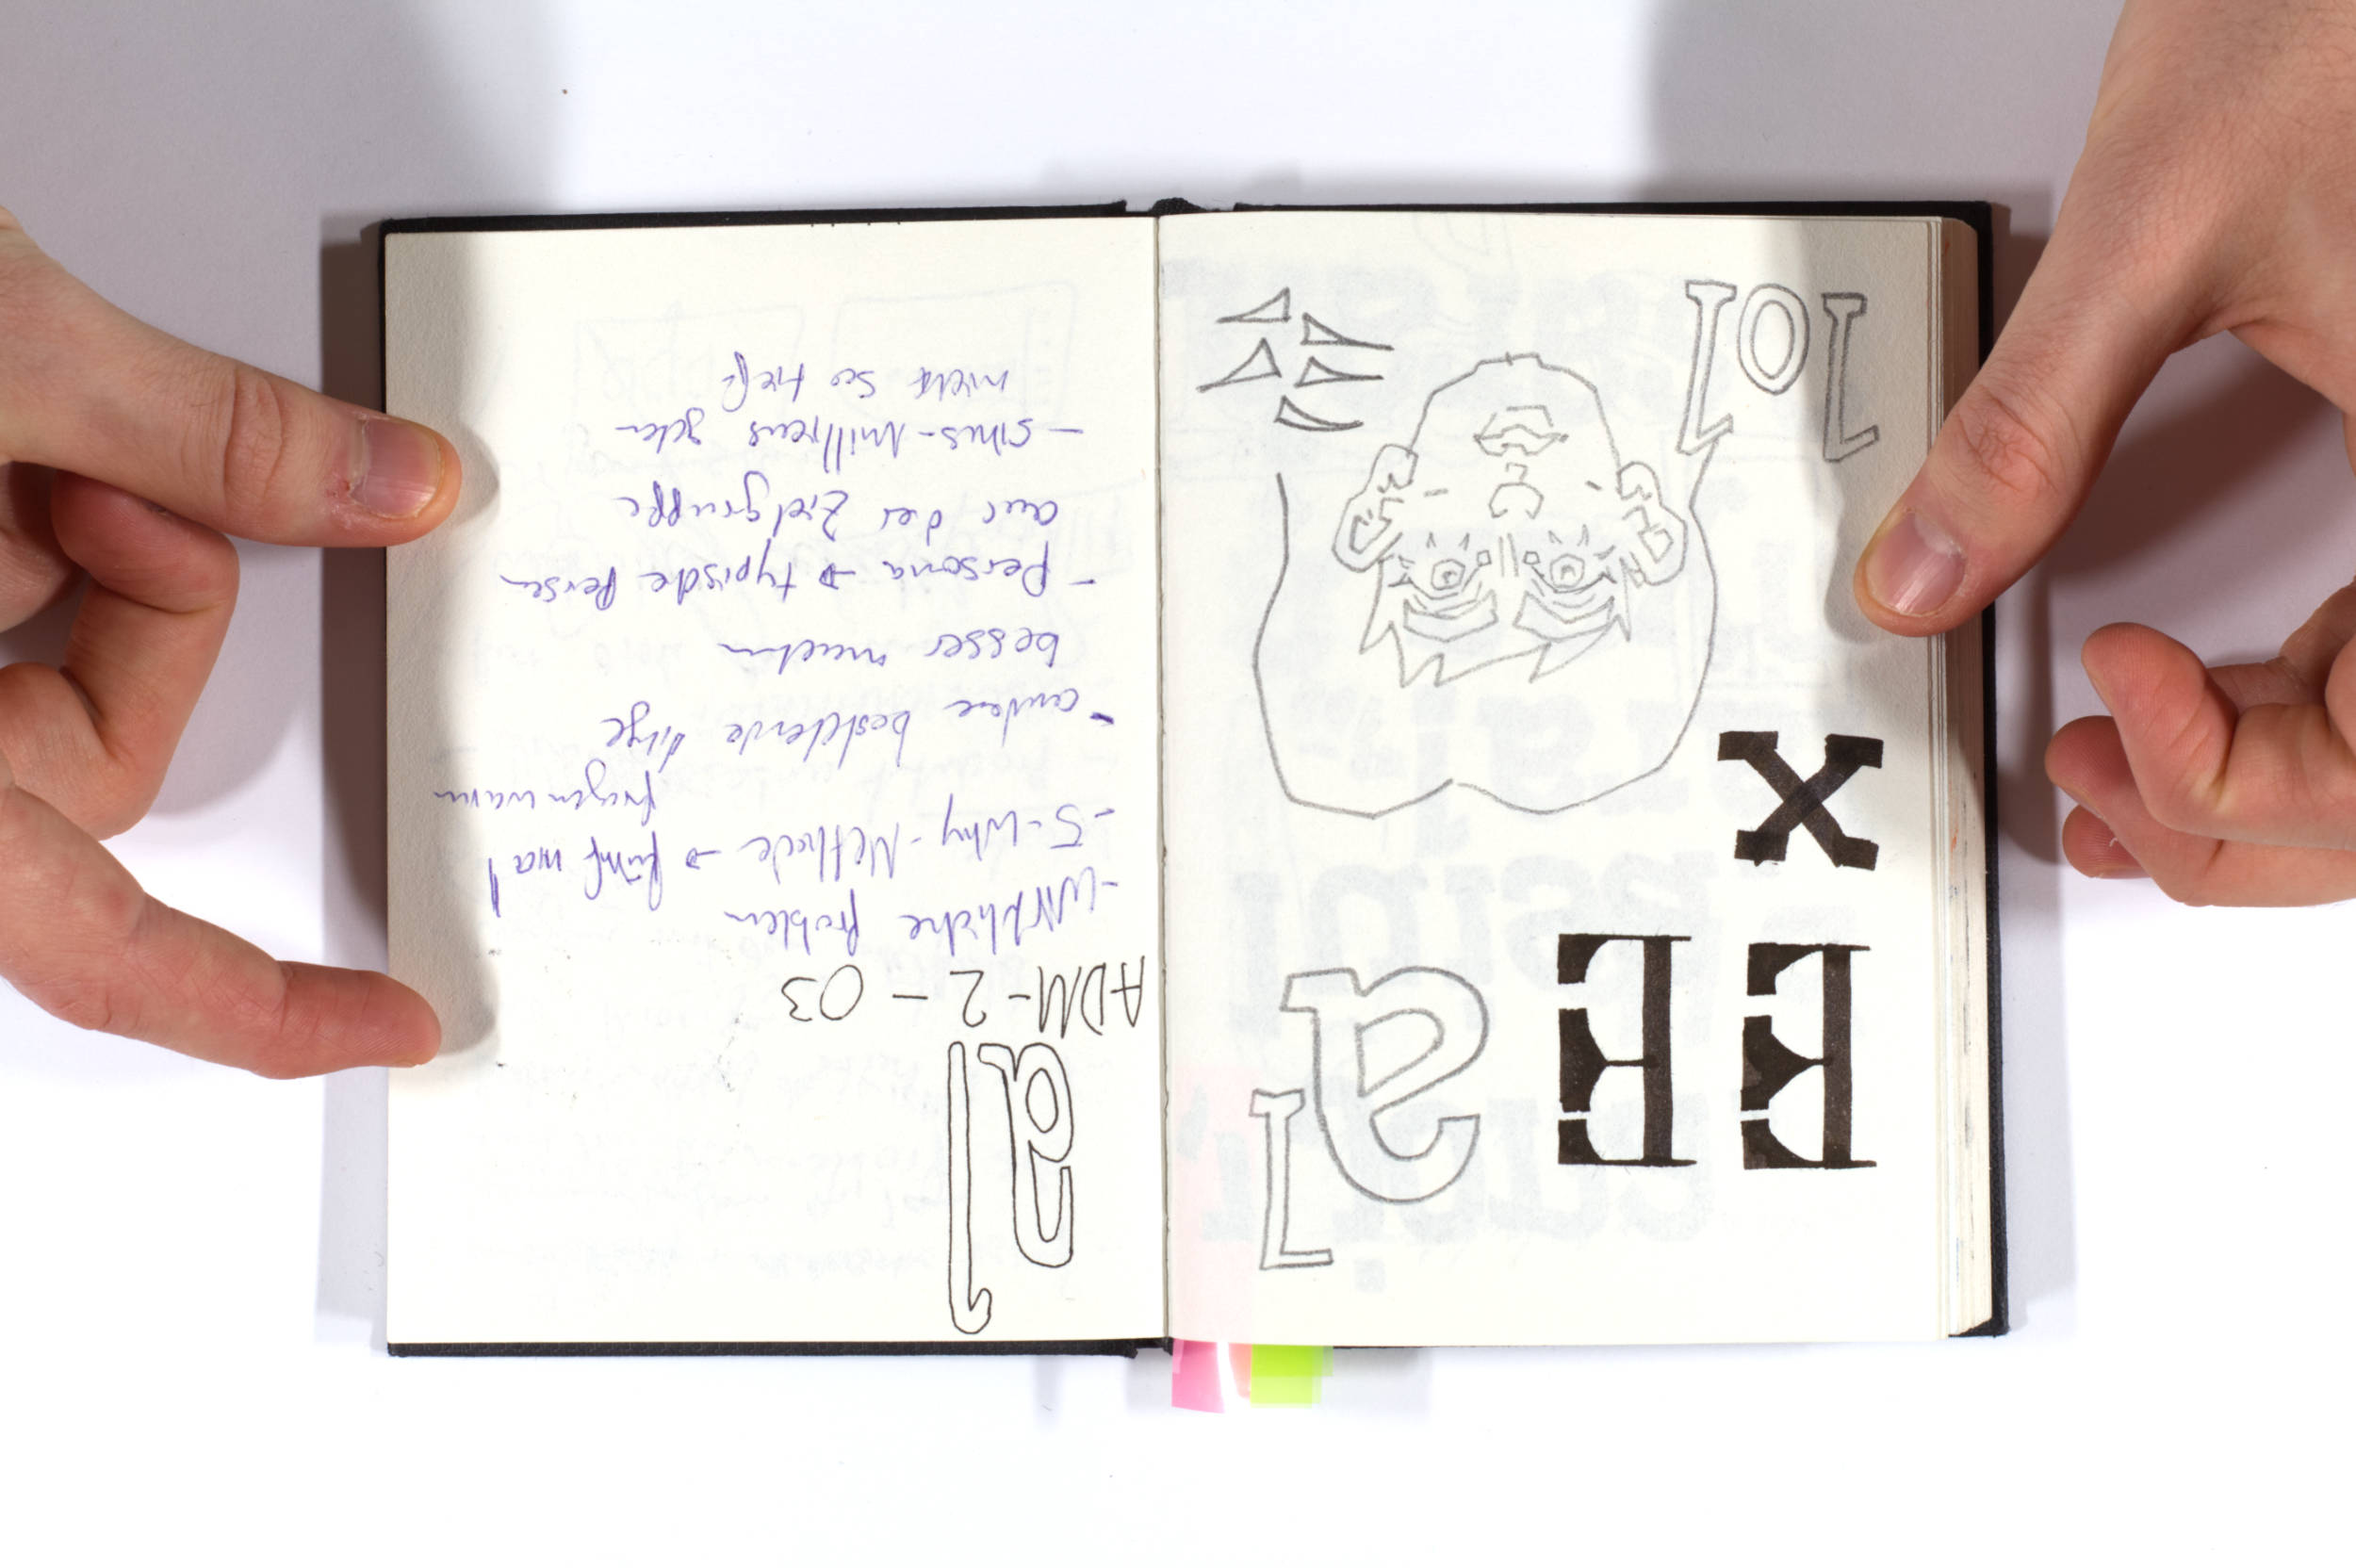 EE a L
x
LOL
al
ADM-2-03
- Wirkliche Problem
- 5-Why-Methode → fünf mal
fragen warum
- andere bestehende dinge
besser machen
- Persona → typische Person
aus der Zielgruppe
- sinus-Millieus gehen
nicht so tief